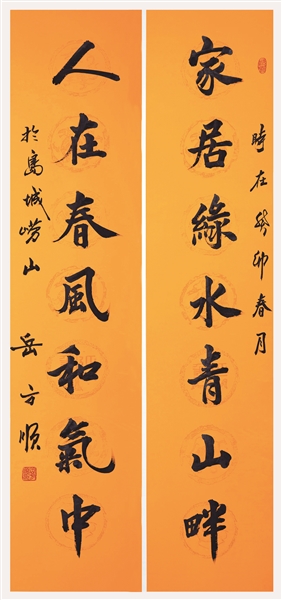 時在癸卯春月
家居綠水青山畔
人在春風和氣中
於島城嶗山 岳方順